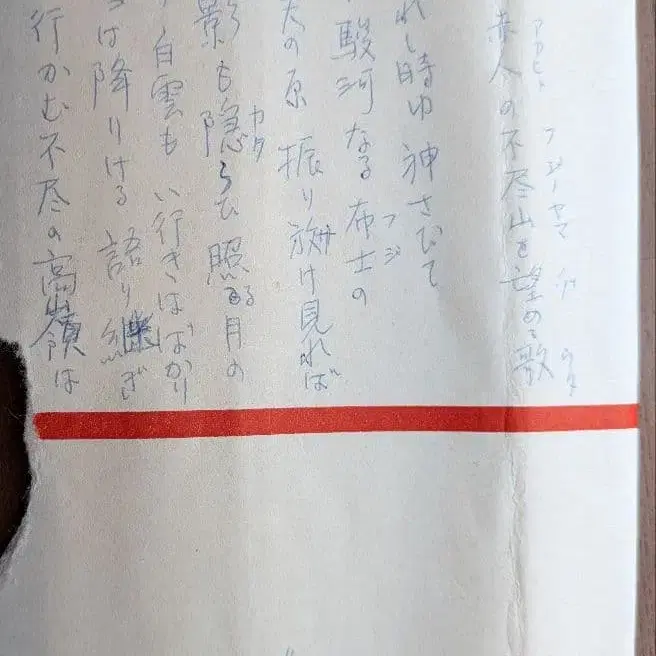 アカヒト フジノヤマ ウタ
赤人の不尽山を望める歌
れし時ゆ 神さびて
駿河なる 布士の
フジ
天の原 振り放け見れば
影も隠らひ 照る月の
カク
白雲も い行きはばかり
は降りける 語り継ぎ
行かむ 不尽の高嶺は